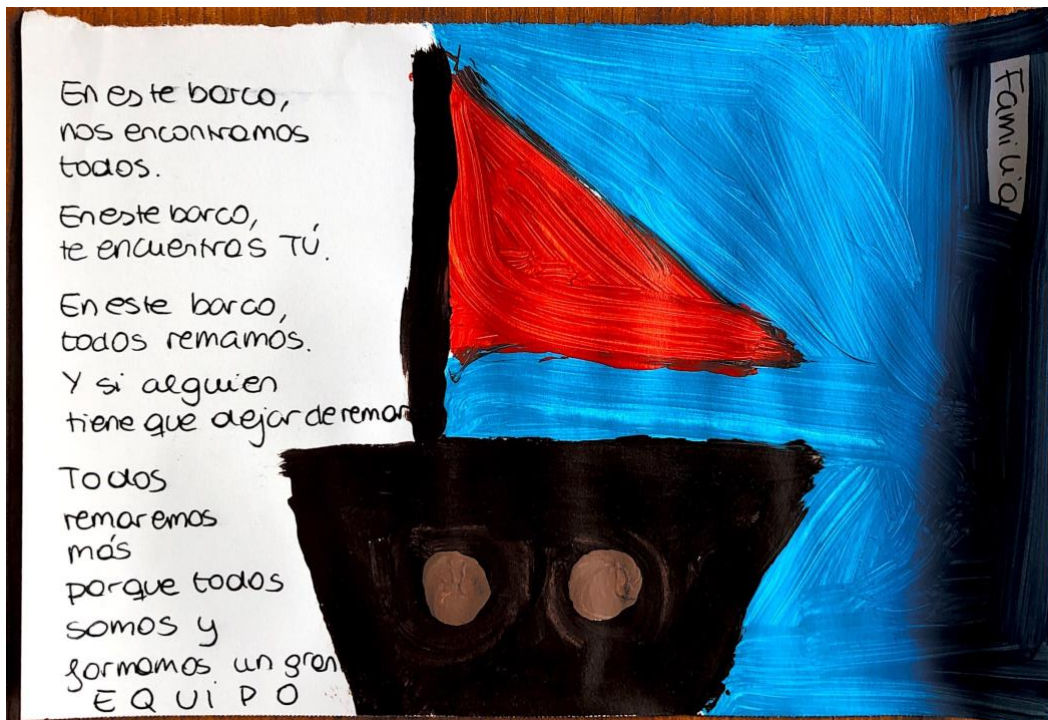 En este barco,
nos encontramos
todos.
En este barco,
te encuentras TÚ.
En este barco,
todos remamos.
Y si alguien
tiene que dejar de remar
Todos
remaremos
más
porque todos
somos y
formamos un gran
EQUIPO
Familia